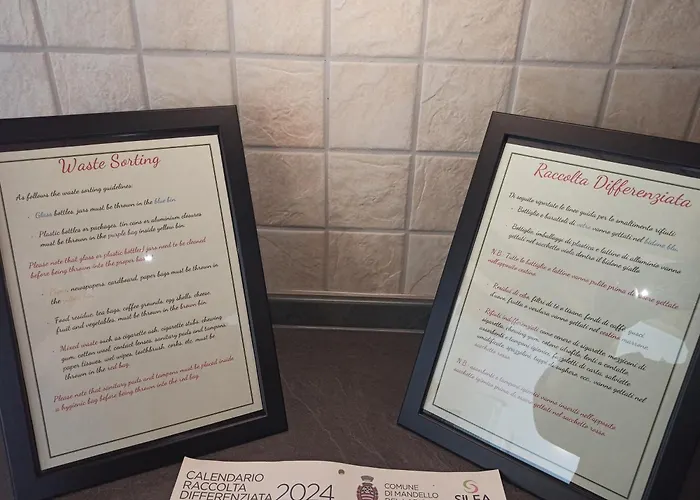 Waste Sorting
As follows the waste sorting guidelines:
- Glass bottles, jars must be thrown in the blue bin
- Plastic bottles or packages, tin cans or aluminium cleaners
must be thrown in the purple bag inside yellow bin
Please note that glass or plastic bottle/ jars need to be cleaned
before being thrown into the proper bin
newspapers, cardboard, paper bags must be thrown in
the
- Food residue, tea bags, coffee grounds, egg shells, cheese,
fruit and vegetables, must be thrown in the brown bin
- Mixed waste such as cigarette ash, cigarette stubs, chewing
gum, cotton wool, contact lenses, sanitary pads and tampons,
paper tissues, wet wipes, toothbrush, corks, etc. must be
thrown in the red bag.
Please note that sanitary pads and tampons must be placed inside
a hygienic bag before being thrown into the red bag.
Raccolta Differenziata
Di seguito riportate le linee guida per lo smaltimento rifiuti:
- Bottiglie e barattoli di vetro vanno gettati nel bidone blu
- Bottiglie, imballaggi di plastica e lattine di alluminio vanno
gettati nel sacchetto viola dentro il bidone giallo
N.B.: Tutte le bottiglie e lattine vanno pulite prima di essere gettate
nell'apposito cestino
- Residui di cibo, filtri di tè e tisane, fondi di caffè, gusci
d'uovo, frutta e verdura vanno gettati nel cestino marrone
- Rifiuti indifferenziati come cenere di sigarette, mozziconi di
sigaretta, chewing gum, cotone idrofilo, lenti a contatto,
assorbenti e tamponi igienici, fazzoletti di carta, salviette
umidificate, spazzolini, tappi di sughero, ecc. vanno gettati nel
sacchetto rosso.
N.B.: assorbenti e tamponi igienici vanno inseriti nell'apposito
sacchetto igienico prima di essere gettati nel sacchetto rosso.
CALENDARIO
RACCOLTA
DIFFERENZIATA 2024
COMUNE
DI MANDELLO
SILEA